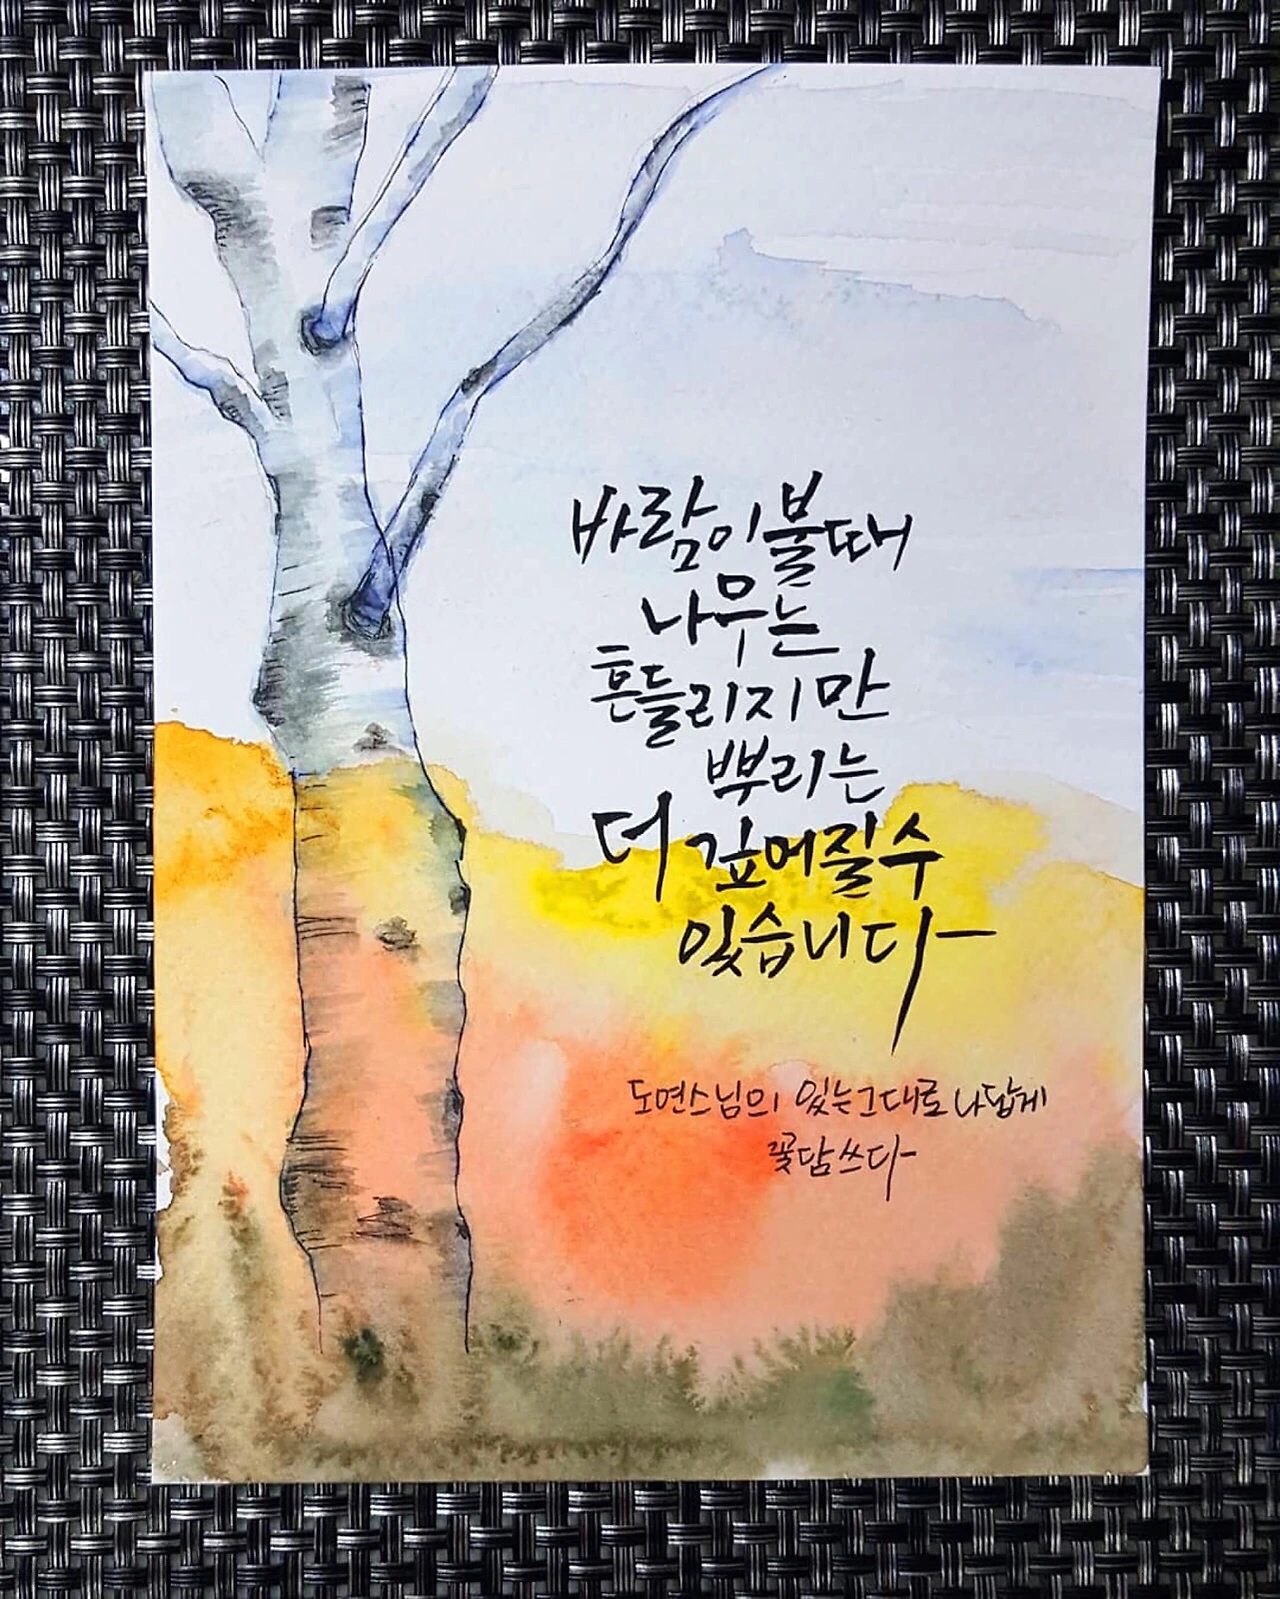 바람이 불 때
나무는
흔들리지만
뿌리는
더 깊어질 수
있습니다
도연스님의 있는 그대로 나답게
꽃담 쓰다